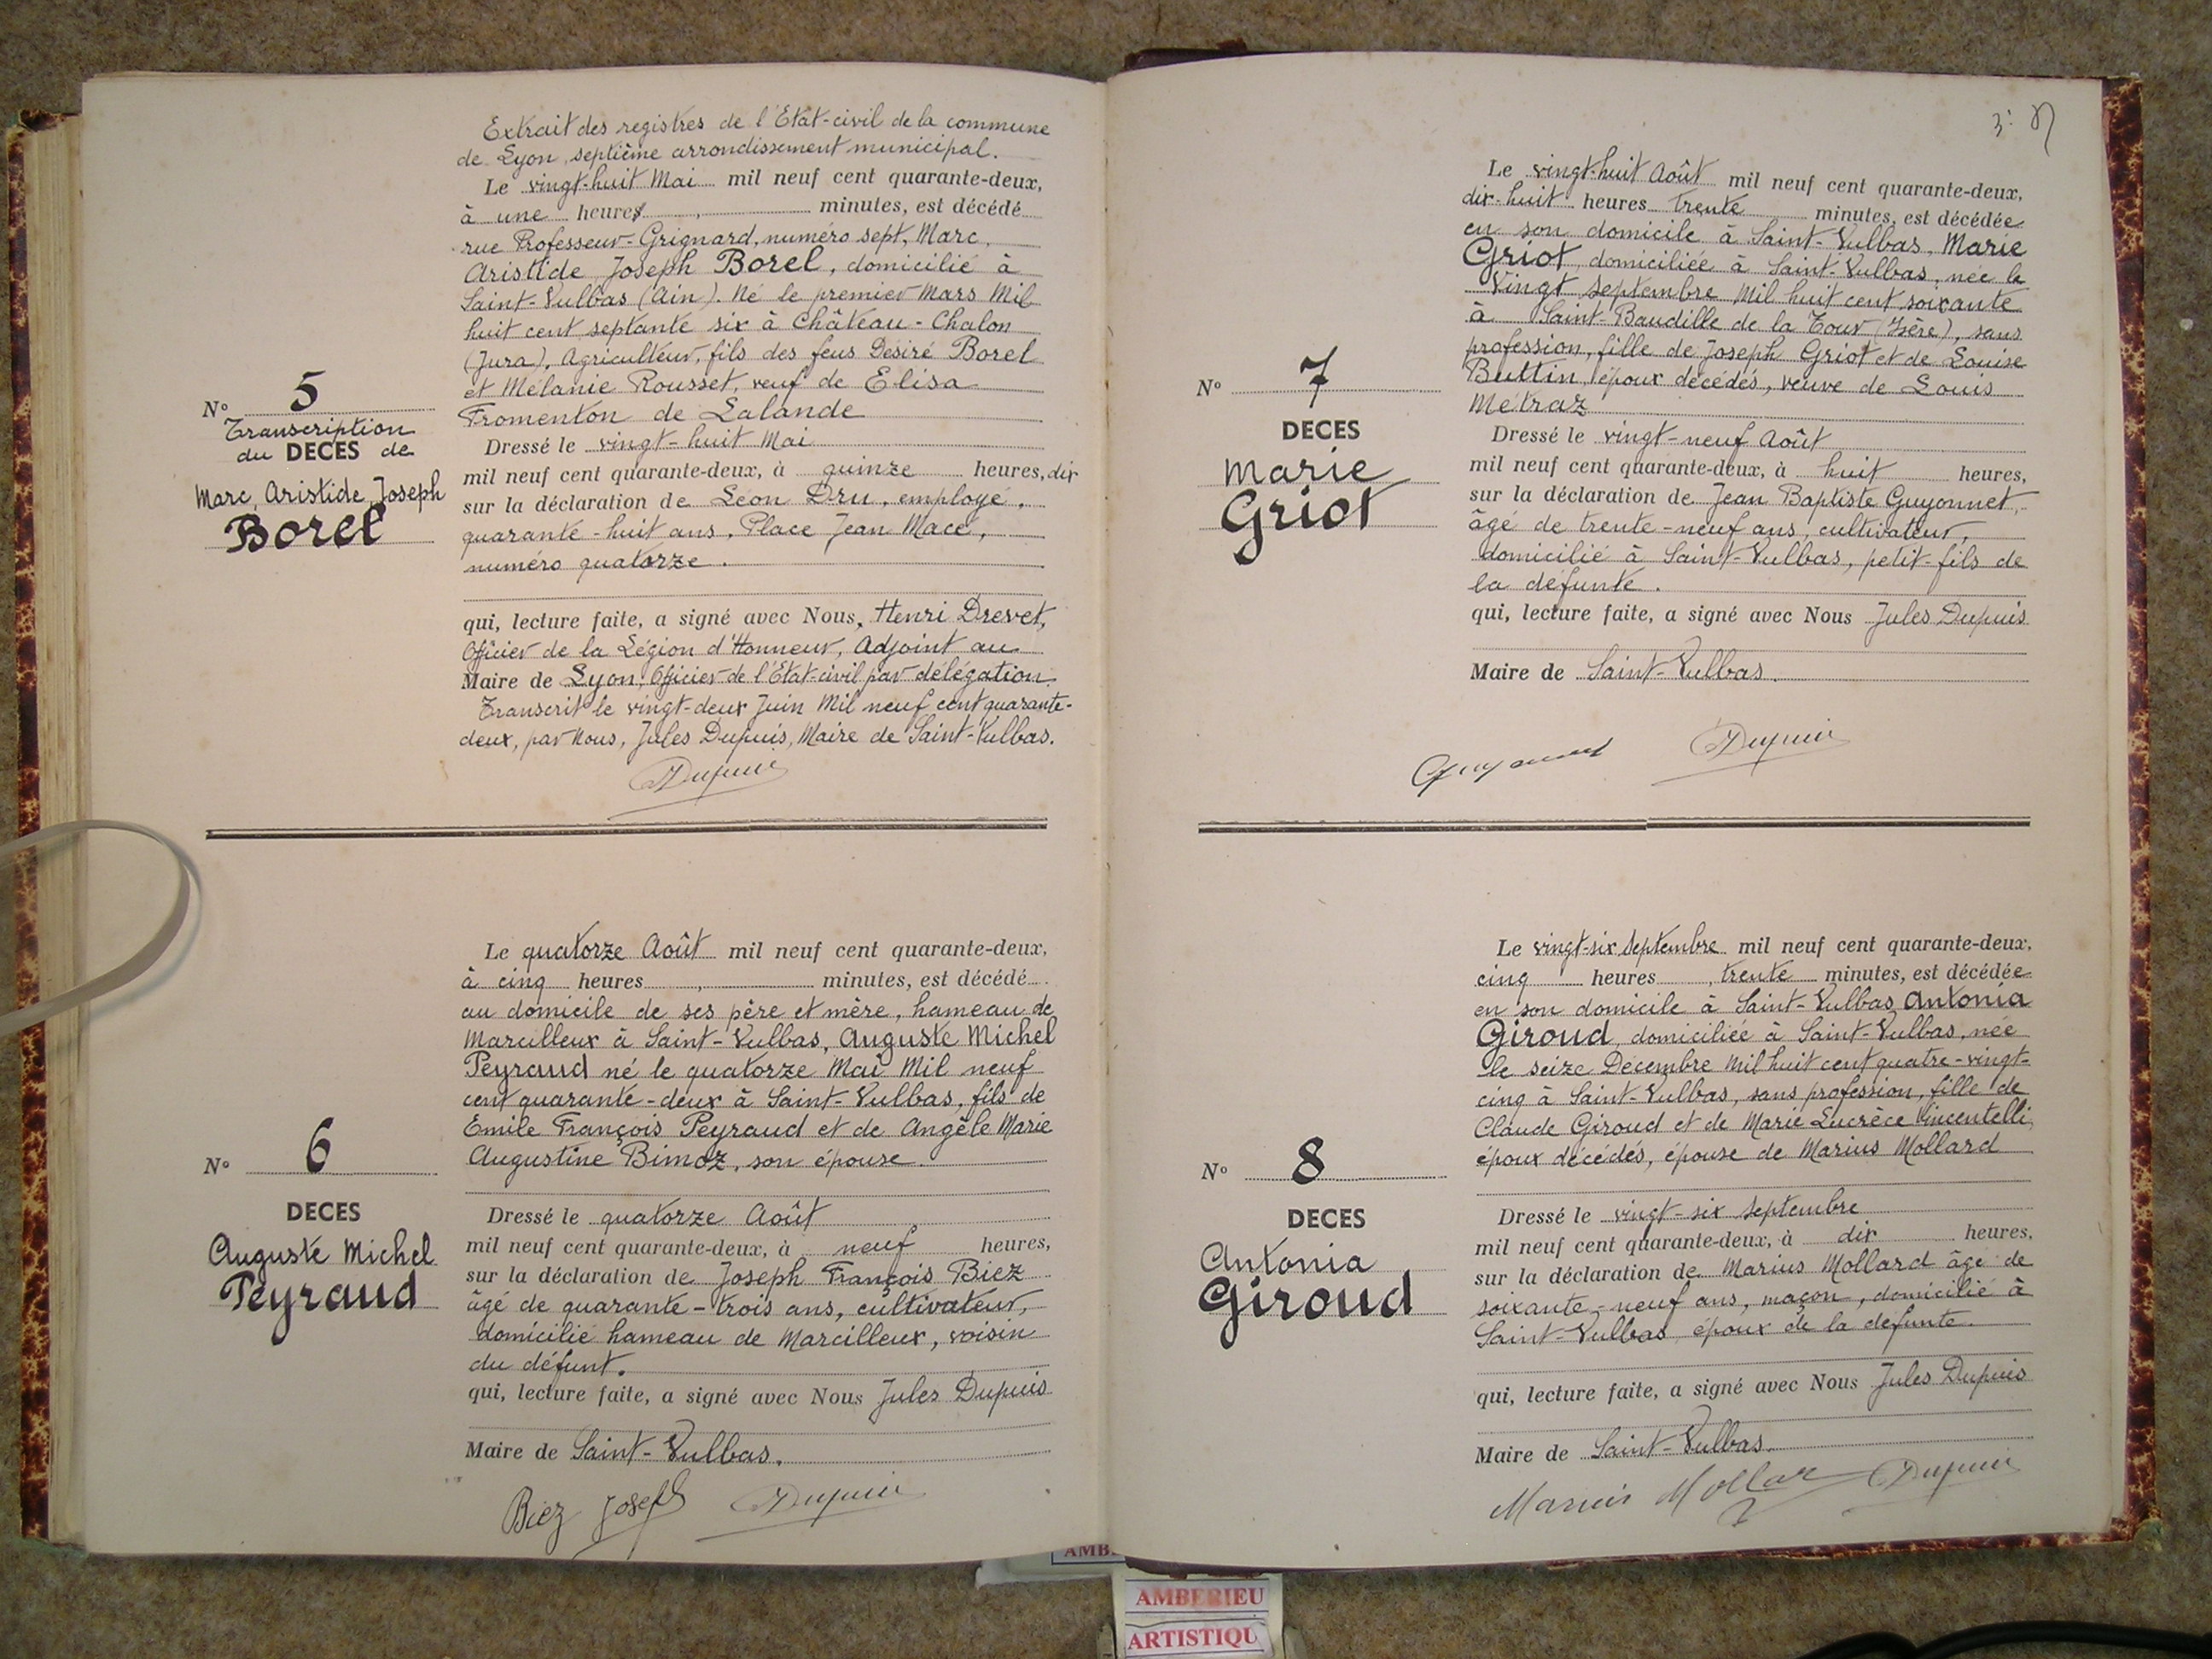 Extrait des registres de l'Etat-civil de la commune
de Lyon, septième arrondissement municipal.
Le vingt-huit Mai mil neuf cent quarante-deux,
à une heures, minutes, est décédé
rue Professeur-Grignard, numéro sept, Marc,
Aristide Joseph Borel, domicilié à
Saint-Vulbas (Ain). Né le premier Mars Mil
huit cent septante six à Château-Chalon
(Jura), Agriculteur, fils des feus Désiré Borel
et Mélanie Rousset, veuf de Elisa
Fromenton de Lalande
Dressé le vingt-huit Mai
mil neuf cent quarante-deux, à quinze heures, dix
sur la déclaration de Léon Dru, employé,
quarante-huit ans, Place Jean Macé,
numéro quatorze.
qui, lecture faite, a signé avec Nous, Henri Drevet,
Officier de la Légion d'Honneur, Adjoint au
Maire de Lyon, Officier de l'Etat-civil par délégation.
Transcrit le vingt-deux Juin Mil neuf cent quarante-
deux, par Nous, Jules Dupuis, Maire de Saint-Vulbas.
Dupuis
N° 5
Transcription
du DECES de
Marc, Aristide, Joseph
Borel
Le quatorze Août mil neuf cent quarante-deux,
à cinq heures, minutes, est décédé
au domicile de ses père et mère, hameau de
Marcilleux à Saint-Vulbas, Auguste Michel
Peyraud né le quatorze Mai Mil neuf
cent quarante-deux à Saint-Vulbas, fils de
Emile François Peyraud et de Angèle Marie
Augustine Bimoz, son épouse.
Dressé le quatorze Août
mil neuf cent quarante-deux, à neuf heures,
sur la déclaration de Joseph François Biez
âgé de quarante-trois ans, cultivateur,
domicilié hameau de Marcilleux, voisin
du défunt.
qui, lecture faite, a signé avec Nous Jules Dupuis
Maire de Saint-Vulbas.
Biez Joseph Dupuis
N° 6
DECES
Auguste Michel
Peyraud
Le vingt-huit Août mil neuf cent quarante-deux,
dix-huit heures trente minutes, est décédée
en son domicile à Saint-Vulbas, Marie
Griot, domiciliée à Saint-Vulbas, née le
Vingt septembre Mil huit cent soixante
à Saint-Baudille de la Tour (Isère), sans
profession, fille de Joseph Griot et de Louise
Buttin, époux décédés, veuve de Louis
Métraz
Dressé le vingt-neuf Août
mil neuf cent quarante-deux, à huit heures,
sur la déclaration de Jean Baptiste Guyonnet,
âgé de trente-neuf ans, cultivateur,
domicilié à Saint-Vulbas, petit-fils de
la défunte.
qui, lecture faite, a signé avec Nous Jules Dupuis
Maire de Saint-Vulbas.
Guyonnet Dupuis
N° 7
DECES
Marie
Griot
Le vingt-six Septembre mil neuf cent quarante-deux,
cinq heures, trente minutes, est décédée
en son domicile à Saint-Vulbas Antonia
Giroud, domiciliée à Saint-Vulbas, née
le seize Décembre Mil huit cent quatre-vingt-
cinq à Saint-Vulbas, sans profession, fille de
Claude Giroud et de Marie Lucrèce Vincentelli,
époux décédés, épouse de Marius Mollard
Dressé le vingt-six Septembre
mil neuf cent quarante-deux, à dix heures,
sur la déclaration de Marius Mollard âgé de
soixante-neuf ans, maçon, domicilié à
Saint-Vulbas, époux de la défunte.
qui, lecture faite, a signé avec Nous Jules Dupuis
Maire de Saint-Vulbas.
Marius Mollar Dupuis
N° 8
DECES
Antonia
Giroud
AMBERIEU
ARTISTIQU